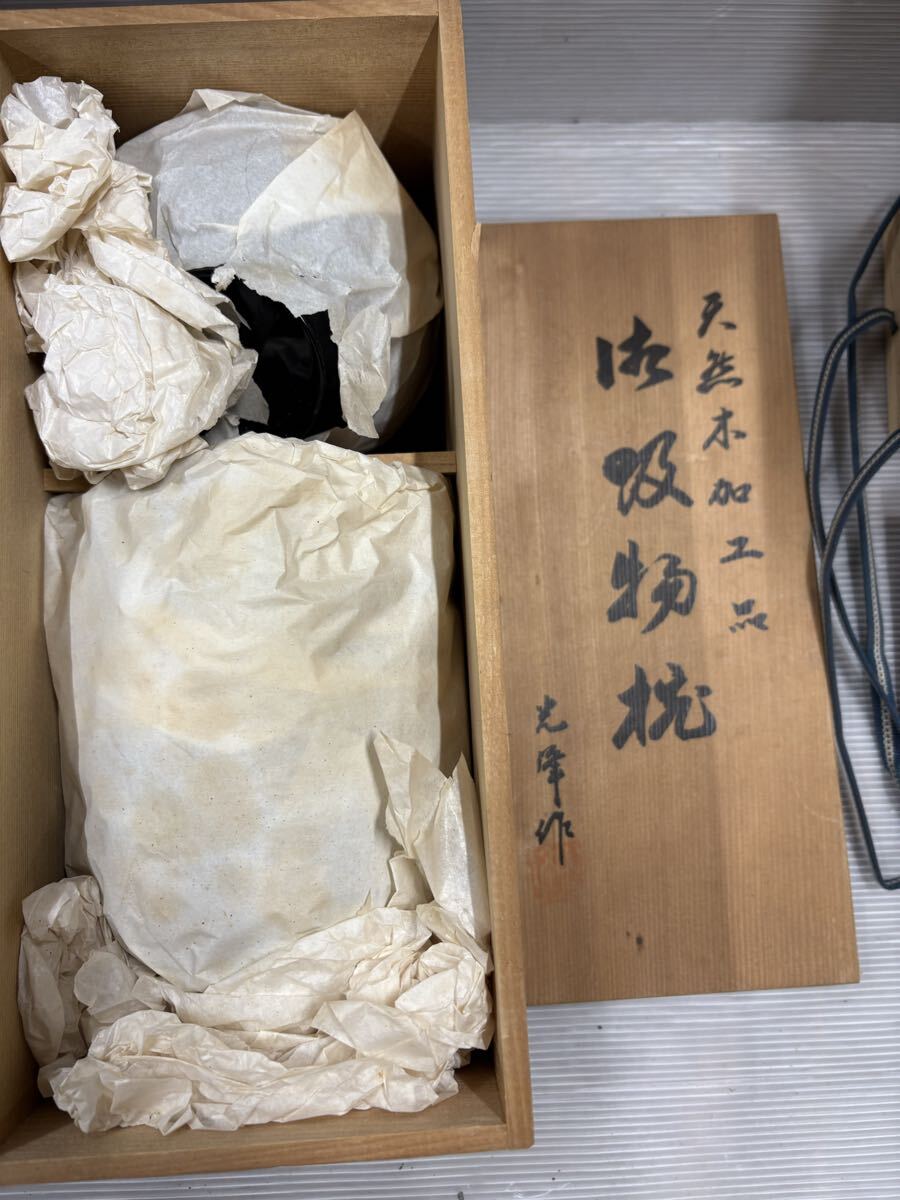 天然木加工品
御吸物椀
光峰作